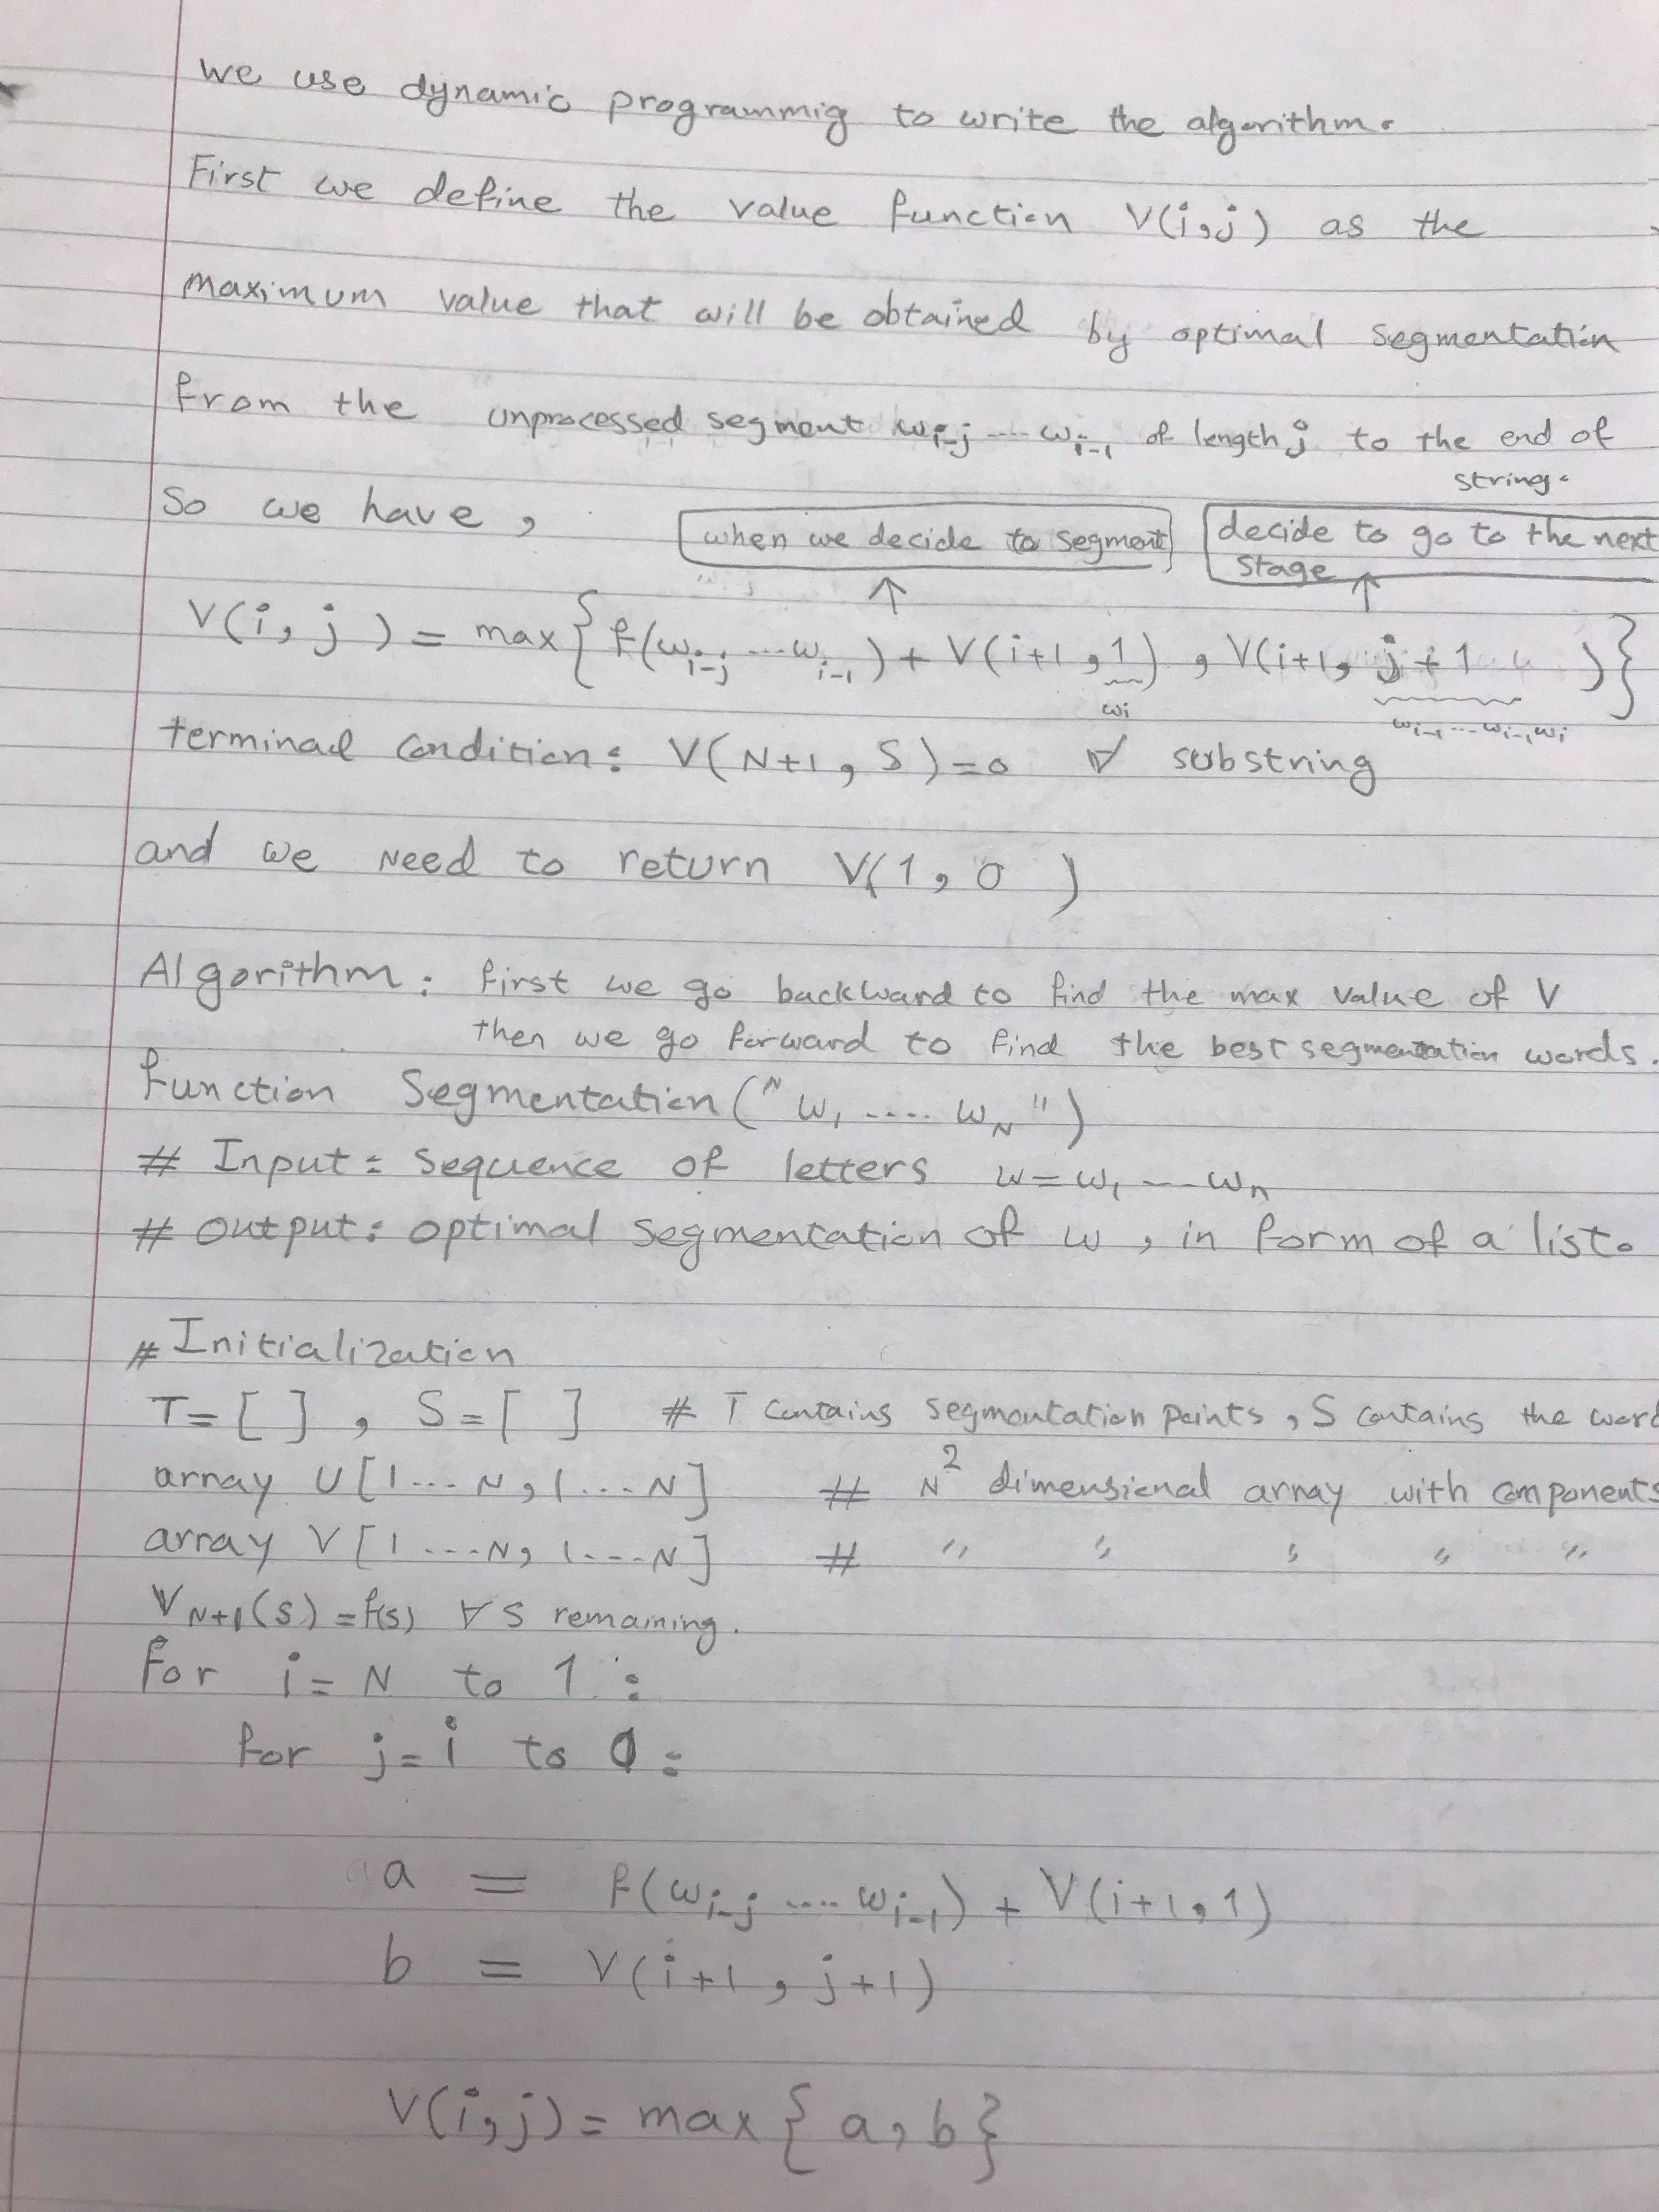 We use dynamic programmig to write the algorithm.
First we define the value function V(i,j) as the
maximum value that will be obtained by optimal segmentation
from the unprocessed segment w_{i-j} .... w_{i-1} of length j to the end of
string.
So we have,
when we decide to segment
decide to go to the next
stage
↑ ↑
V(i, j) = max{ f(w_{i-j} ... w_{i-1}) + V(i+1, 1) , V(i+1, j+1 ) }
w_i
w_{i-1} ... w_{i-1}, w_i
terminal condition: V(N+1, S) = 0 ∀ substring
and we need to return V(1, 0 )
Algorithm: first we go backward to find the max value of V
then we go forward to find the best segmentation words.
function Segmentation("w_1 ..... w_N")
# Input: sequence of letters w = w_1 --- w_n
# output: optimal segmentation of w, in form of a list.
# Initialization
T = [ ] , S = [ ] # T contains segmentation points, S contains the word
array U[1...N, 1...N] # N^2 dimensional array with components
array V[1...N, 1...N] # " " " " "
V_{N+1}(s) = f(s) ∀ s remaining.
for i = N to 1 :
for j = i to 0 :
a = f(w_{i-j} .... w_{i-1}) + V(i+1, 1)
b = V(i+1, j+1)
V(i,j) = max{ a, b }